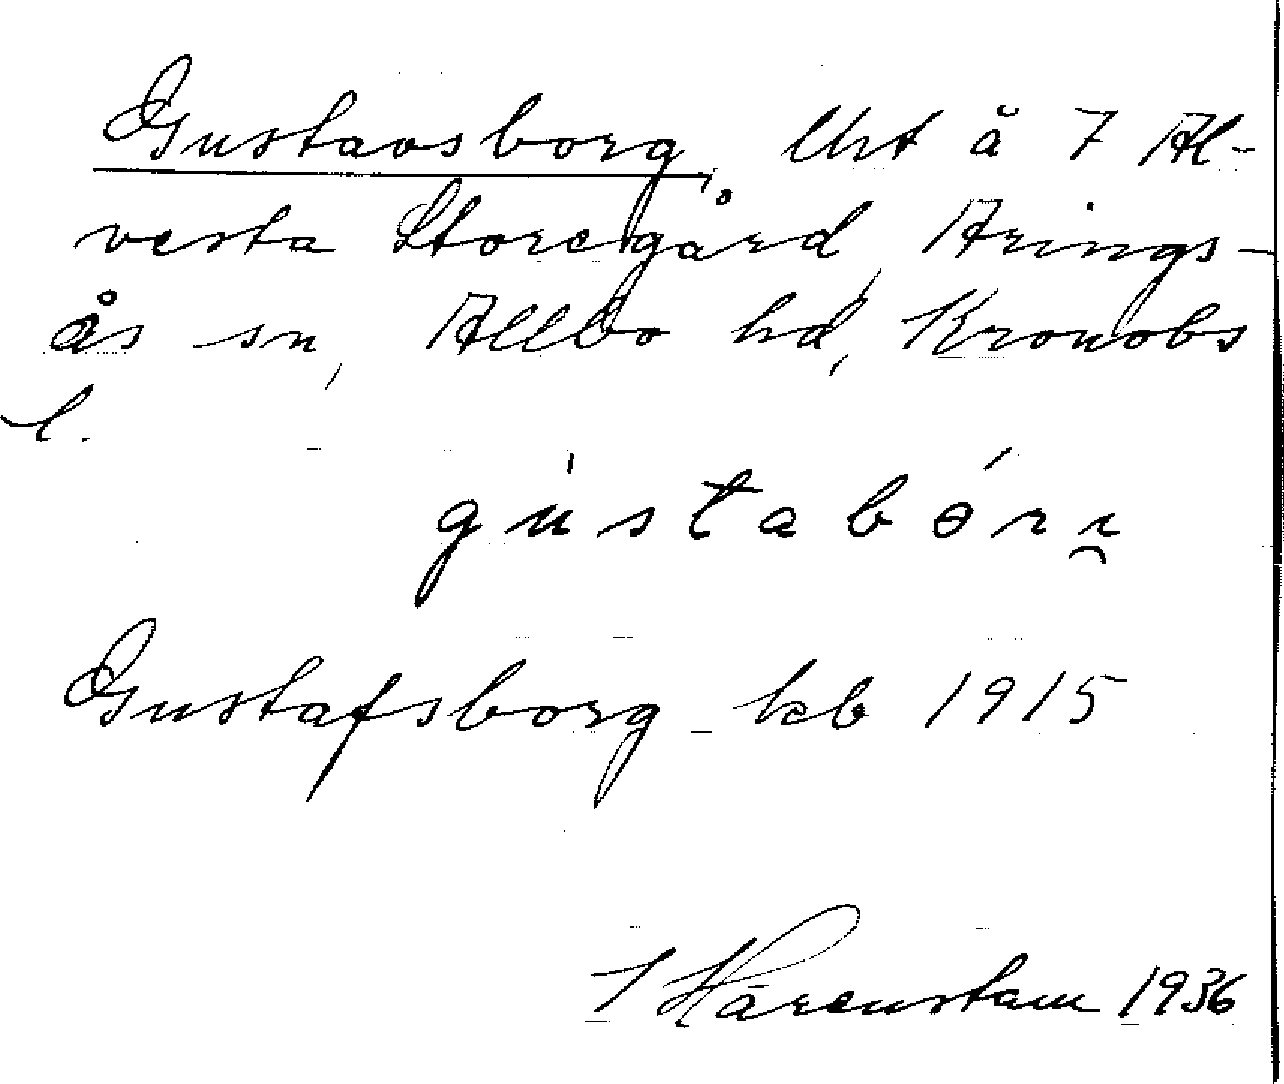 Gustavsborg, Urt å 7 Al-
vesta Storegård, Arings-
ås sn, Allbo hd, Kronobs
l.
gu̍stabórɪ̯
Gustafsborg kb 1915
Härenstam 1936